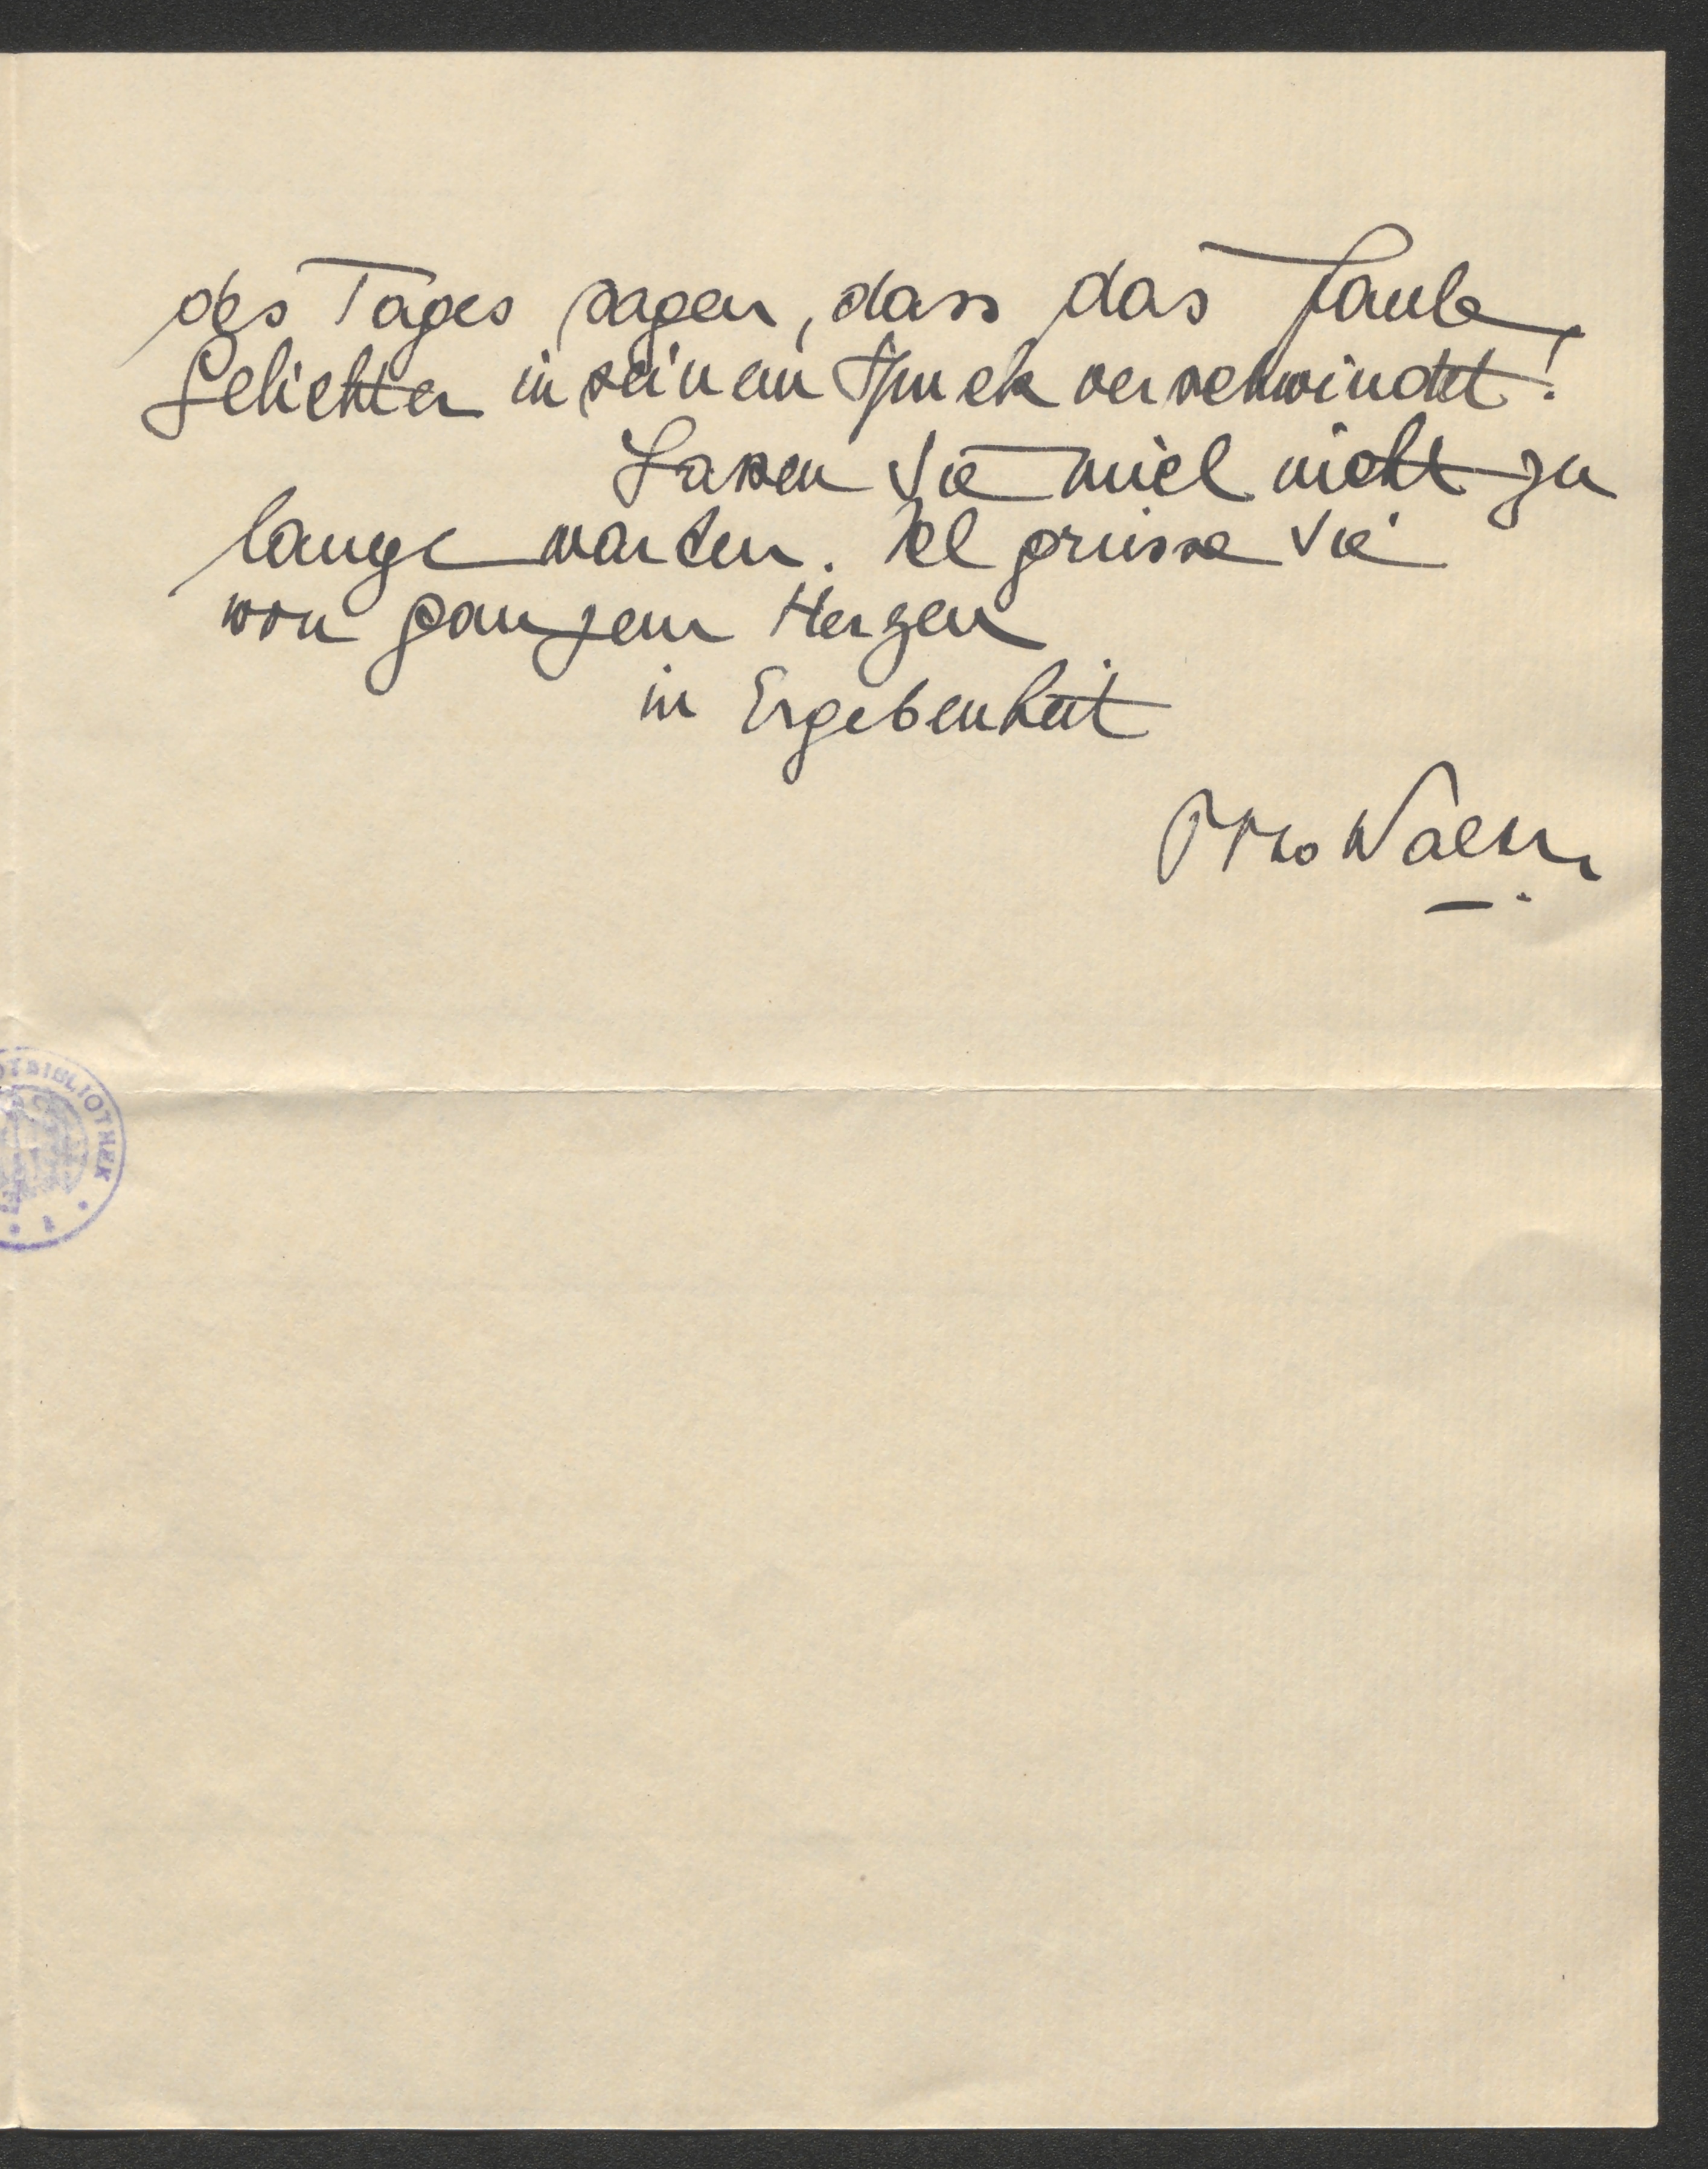 des Tages sagen, dass das faule
Gelichter in seinem Spuck verschwindet!
Lassen Sie mich nicht zu
lange warten. Ich grüsse Sie
von ganzem Herzen
in Ergebenheit
Otto
BIBLIOTHEK